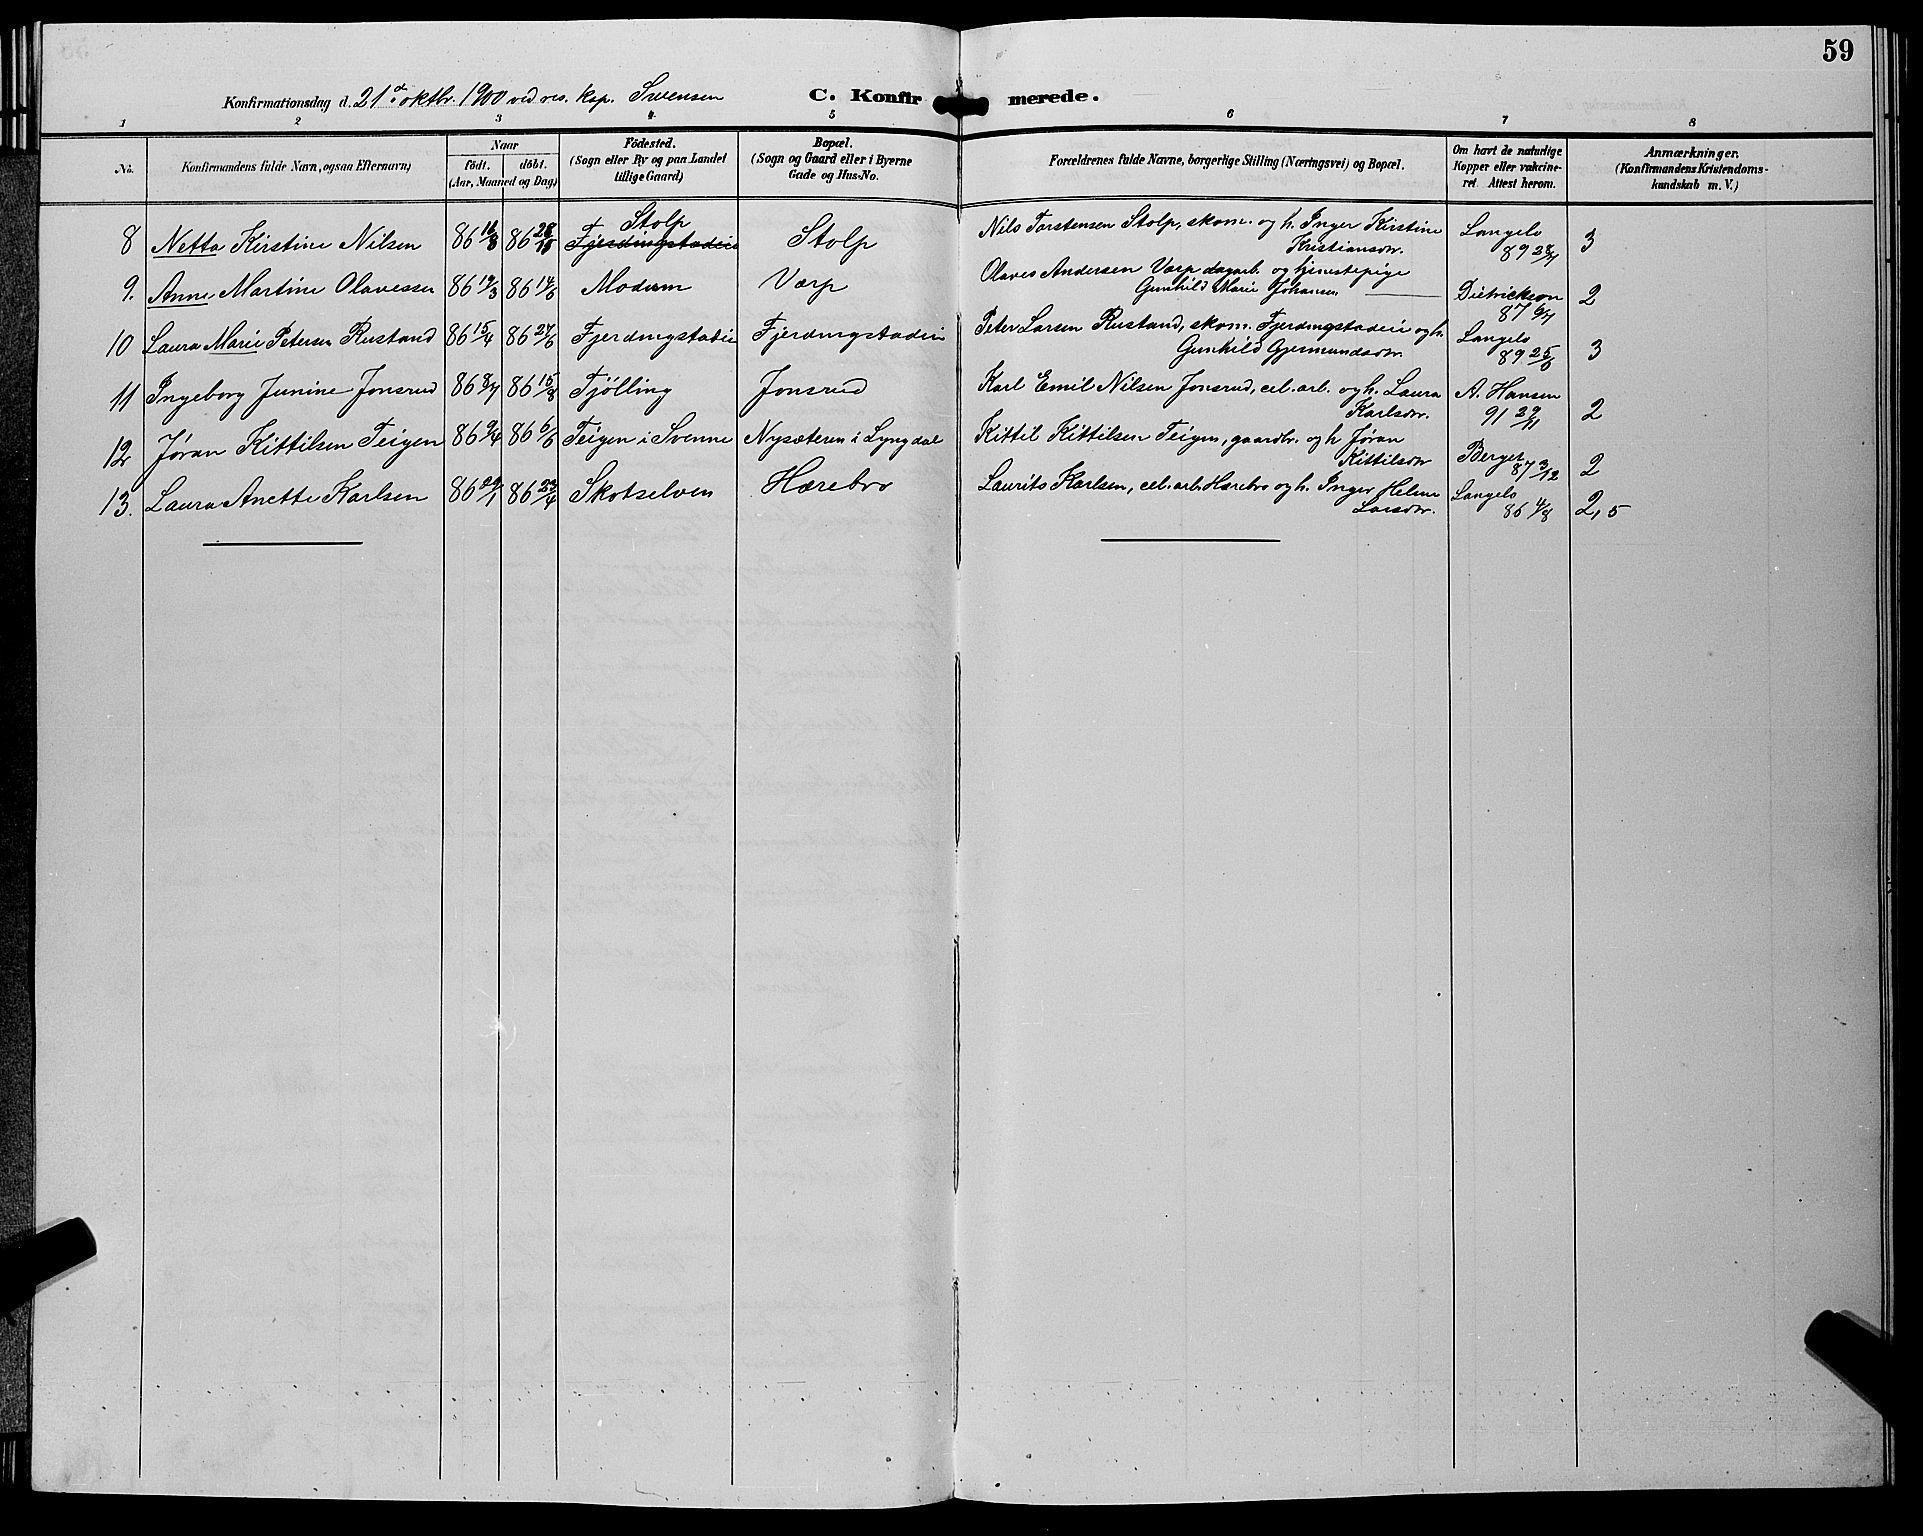 59
Konfirmationsdag d. 21de oktbr. 1900 ved res. kap. Svensen C. Konfirmerede.
1 2 3 4 5 6 7 8
No. Konfirmandens fulde Navn, ogsaa Efternavn) Naar født. døbt. (Aar, Maaned og Dag) Födested. (Sogn eller By og paa Landet tillige Gaard) Bopæl. (Sogn og Gaard eller i Byerne Gade og Hus-No. Forældrenes fulde Navne, borgerlige Stilling (Næringsvei) og Bopæl. Om havt de naturlige Kopper eller vakcineret Attest herom. Anmærkninger. (Konfirmandens Kristendomskundskab m. V.)
8 Netta Kirstine Nilsen 86 16/8 86 28/10 Stolp Fjerdingstadeie Stolp Nils Torstensen Stolp, skom. og h. Inger Kirstine Kristiansdr. Langelo 89 28/7 3
9. Anne Martine Olavessen 86 19/3 86 14/6 Modum Varp Olaves Andersen Varp dagarb. og tjenestepige Gunhild Marie Johansen Dietrickson 87 9/7 2
10 Laura Marie Petersen Rustand 86 15/4 86 27/6 Fjerdingstadeie Fjerdingstadeie Peter Larsen Rustand, skom. Fjerdingstadeie og h. Gunhild Gjermundsdr. Langelo 89 25/6 3
11 Ingeborg Junine Jonsrud 86 8/7 86 15/8 Tjølling Jonsrud Karl Emil Nilsen Jonsrud, cel. arb. og h. Laura Karlsdr. A. Hansen 91 29/11 2
12 Jøran Kittilsen Teigen 86 9/4 86 6/6 Teigen i Svenne Nysæteren i Lyngdal Kittil Kittilsen Teigen, gaardbr. og h Jøran Kittilsdr Berget 87 3/12 2
13. Laura Anette Karlsen 86 29/1 86 23/4 Skotselven Hærebro Laurits Karlsen, cel. arb. Hærebro og h. Inger Helene Larsdr. Langelo 86 4/8 2,5